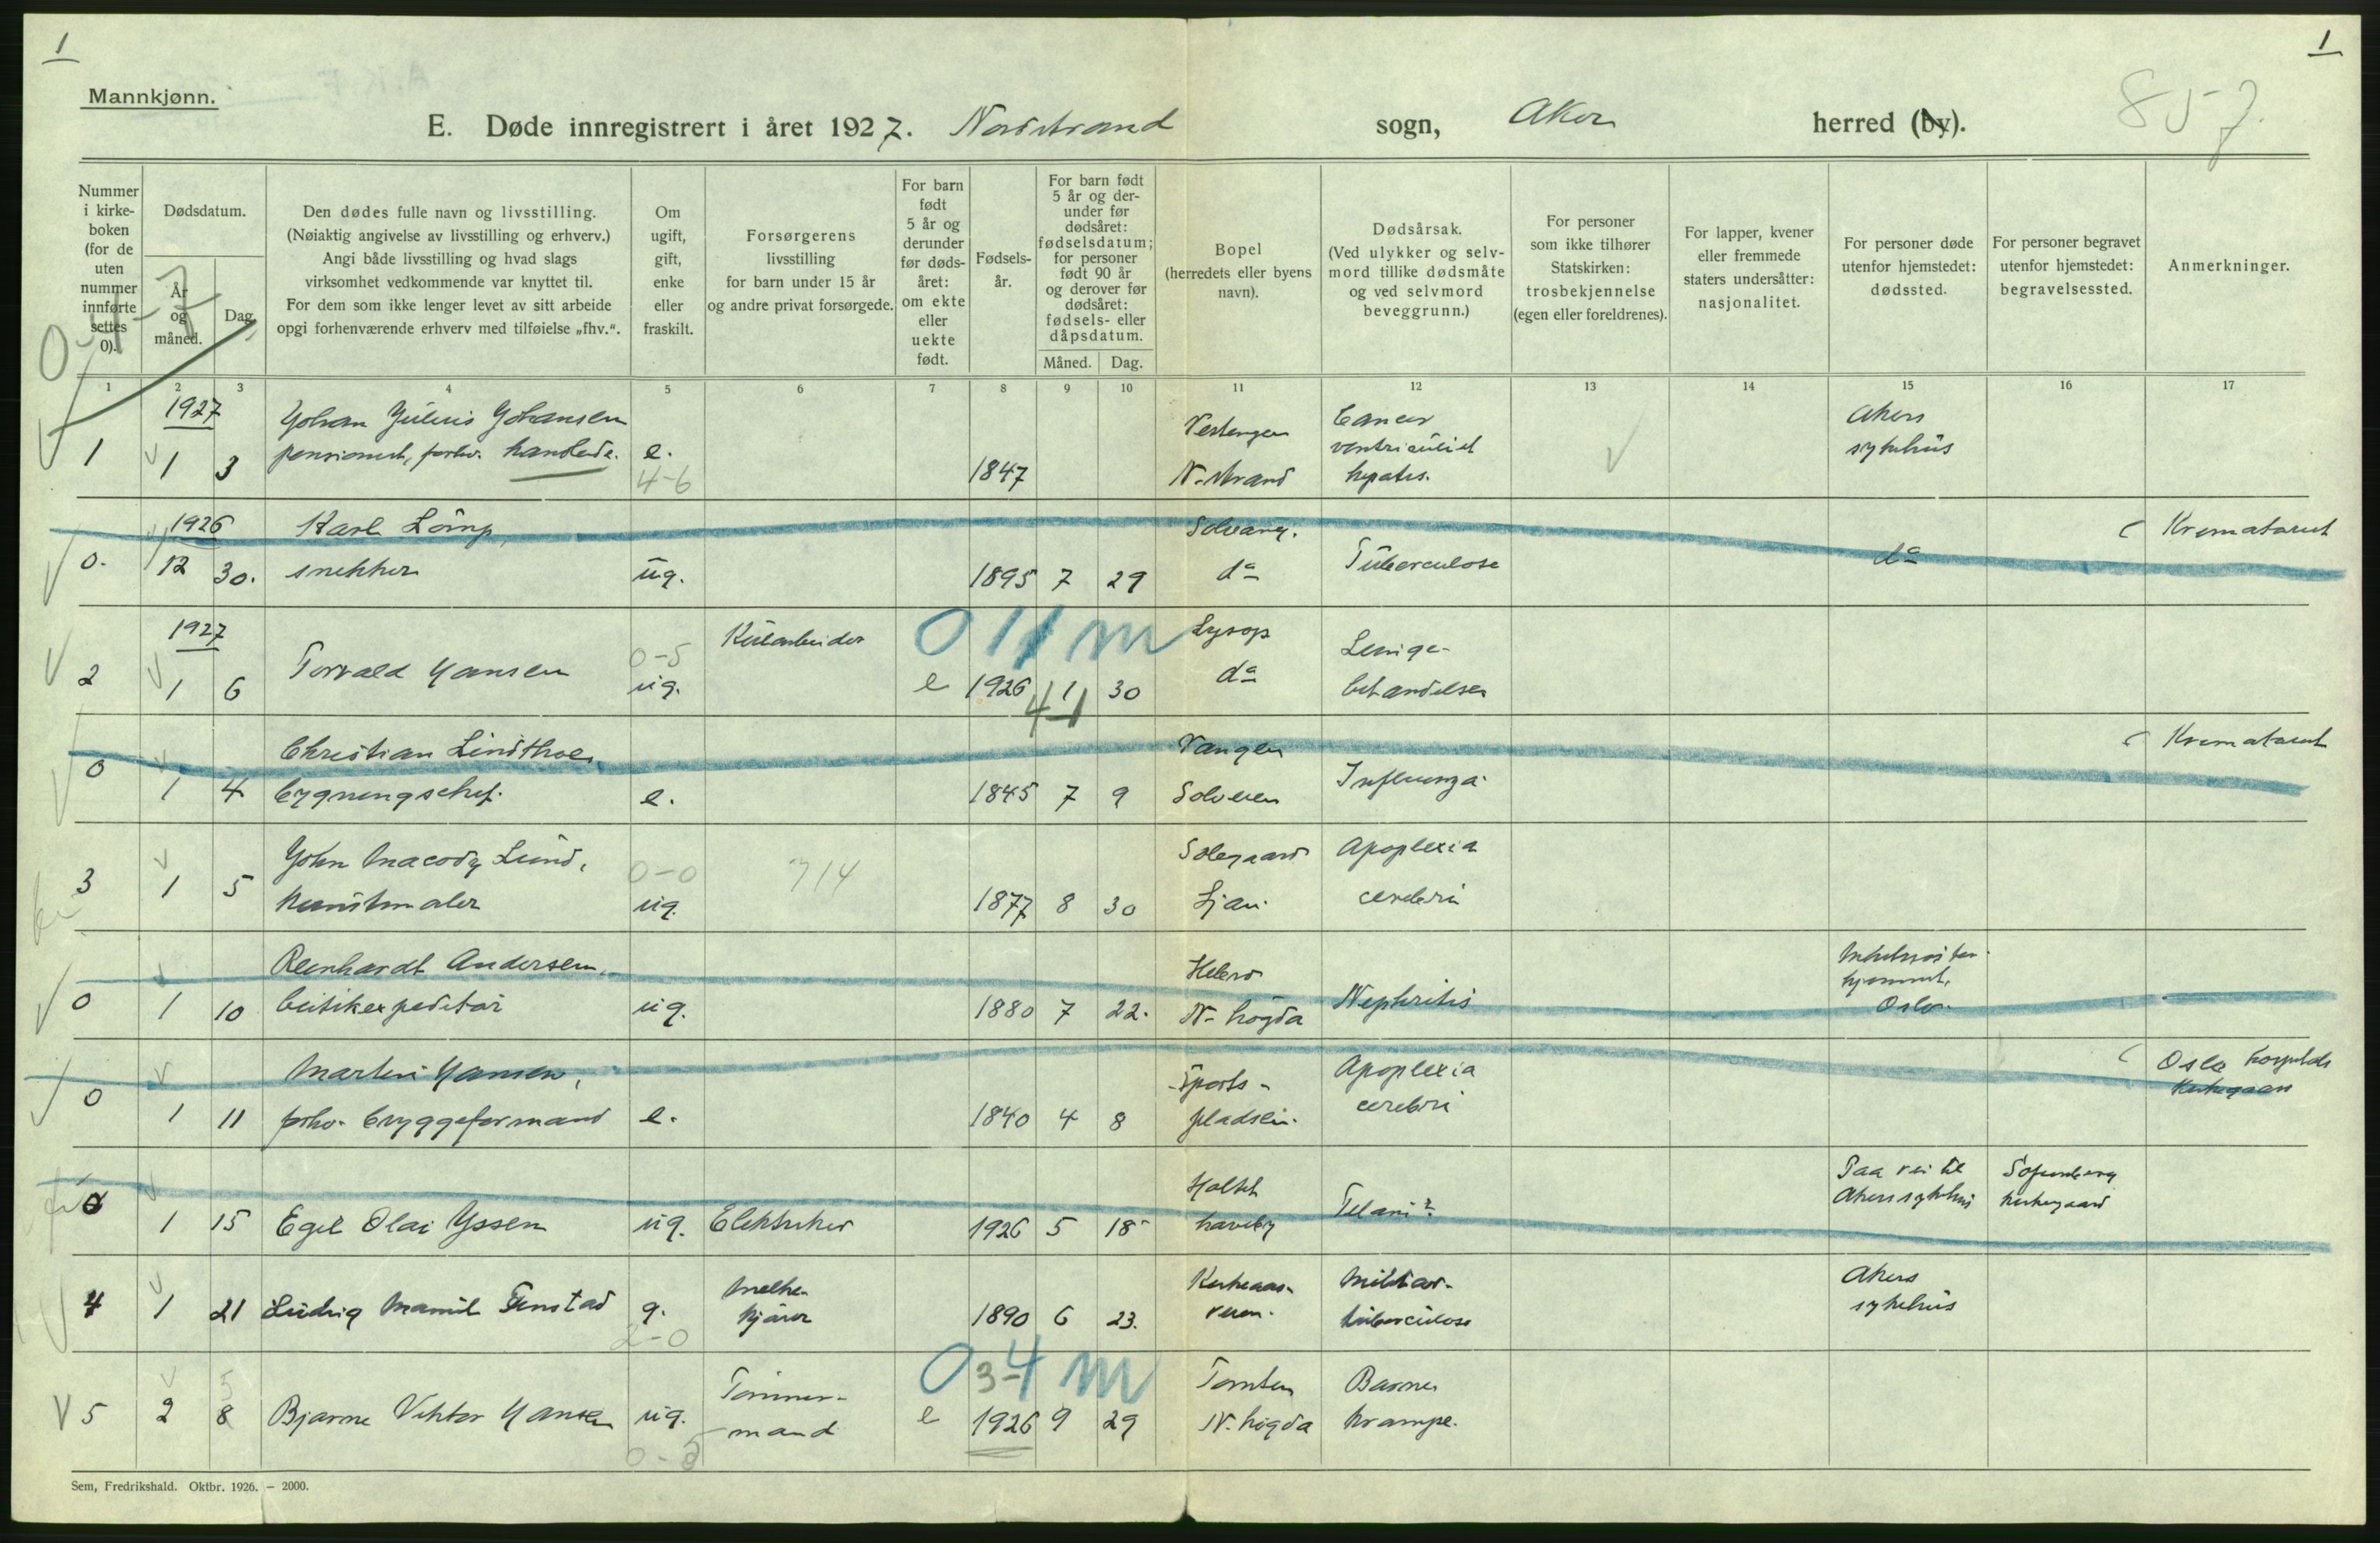 1
1
Mannkjønn.
857.
E. Døde innregistrert i året 1927. Nordstrand sogn, Aker herred (by).
Nummer i kirke- boken (for de uten nummer innførte settes 0).
Dødsdatum.
År og måned.
Dag.
Den dødes fulle navn og livsstilling.
(Nøiaktig angivelse av livsstilling og erhverv.)
Angi både livsstilling og hvad slags
virksomhet vedkommende var knyttet til.
For dem som ikke lenger levet av sitt arbeide
opgi forhenværende erhverv med tilføielse „fhv.“.
Om ugift, gift, enke eller fraskilt.
Forsørgerens
livsstilling
for barn under 15 år
og andre privat forsørgede.
For barn født 5 år og derunder før døds- året: om ekte eller uekte født.
Fødsels- år.
For barn født 5 år og der- under før dødsåret: fødselsdatum; for personer født 90 år og derover før dødsåret: fødsels- eller dåpsdatum.
Måned.
Dag.
Bopel
(herredets eller byens
navn).
Dødsårsak.
(Ved ulykker og selv-
mord tillike dødsmåte
og ved selvmord
beveggrunn.)
For personer
som ikke tilhører
Statskirken:
trosbekjennelse
(egen eller foreldrenes).
For lapper, kvener
eller fremmede
staters undersåtter:
nasjonalitet.
For personer døde
utenfor hjemstedet:
dødssted.
For personer begravet
utenfor hjemstedet:
begravelsessted.
Anmerkninger.
1 2 3 4 5 6 7 8 9 10 11 12 13 14 15 16 17
1927 Johan Julius Johansen Cancer Akers
1 1 3 pensionist, e. 1847 N.strand ventriculi et sykehus
4-6 hepatis.
1926 Karl Solvang. Krematoriet
0. 12 30. snekker ug. 1895 7 29 do Tuberculose do
1927 0-5 011 m
2 1 6 Torvald Hansen ug. e 1926 1 30 do
41
Christian Vangen Krematoriet
0 1 4 bygningschef. e. 1845 7 9 Influenza
John Macody Lund, 0-0 714 Solegaard Apoplexia
3 1 5 Kunstmaler ug. 1877 8 30 Ljan. cerebri
Reinhardt Andersen,
0 1 10 ug. 1880 7 22. N-høgda Nephritis Oslo.
Martin Hansen, Sports- Apoplexia Oslo hospitals
0 1 11 forhv. bryggeformand e. 1840 4 8 pladsen. cerebri Kirkegaard
Holtet Paa vei til Sofienberg
0 1 15 Egil Olai Yssen ug. Elektriker 1926 5 18 haveby Tetani? Akers sykehus kirkegaard
Melke- Kirkeaas- Miliar- Akers
4 1 21 Ludvig g. kjører 1890 6 23. veien. tuberculose sykehus
2-0 034 m
Tømmer- Tomten Barne
5 2 8 Bjarne Viktor Hansen ug. mand e 1926 9 29 N. høgda krampe.
Sem, Fredrikshald. Oktbr. 1926. – 2000.